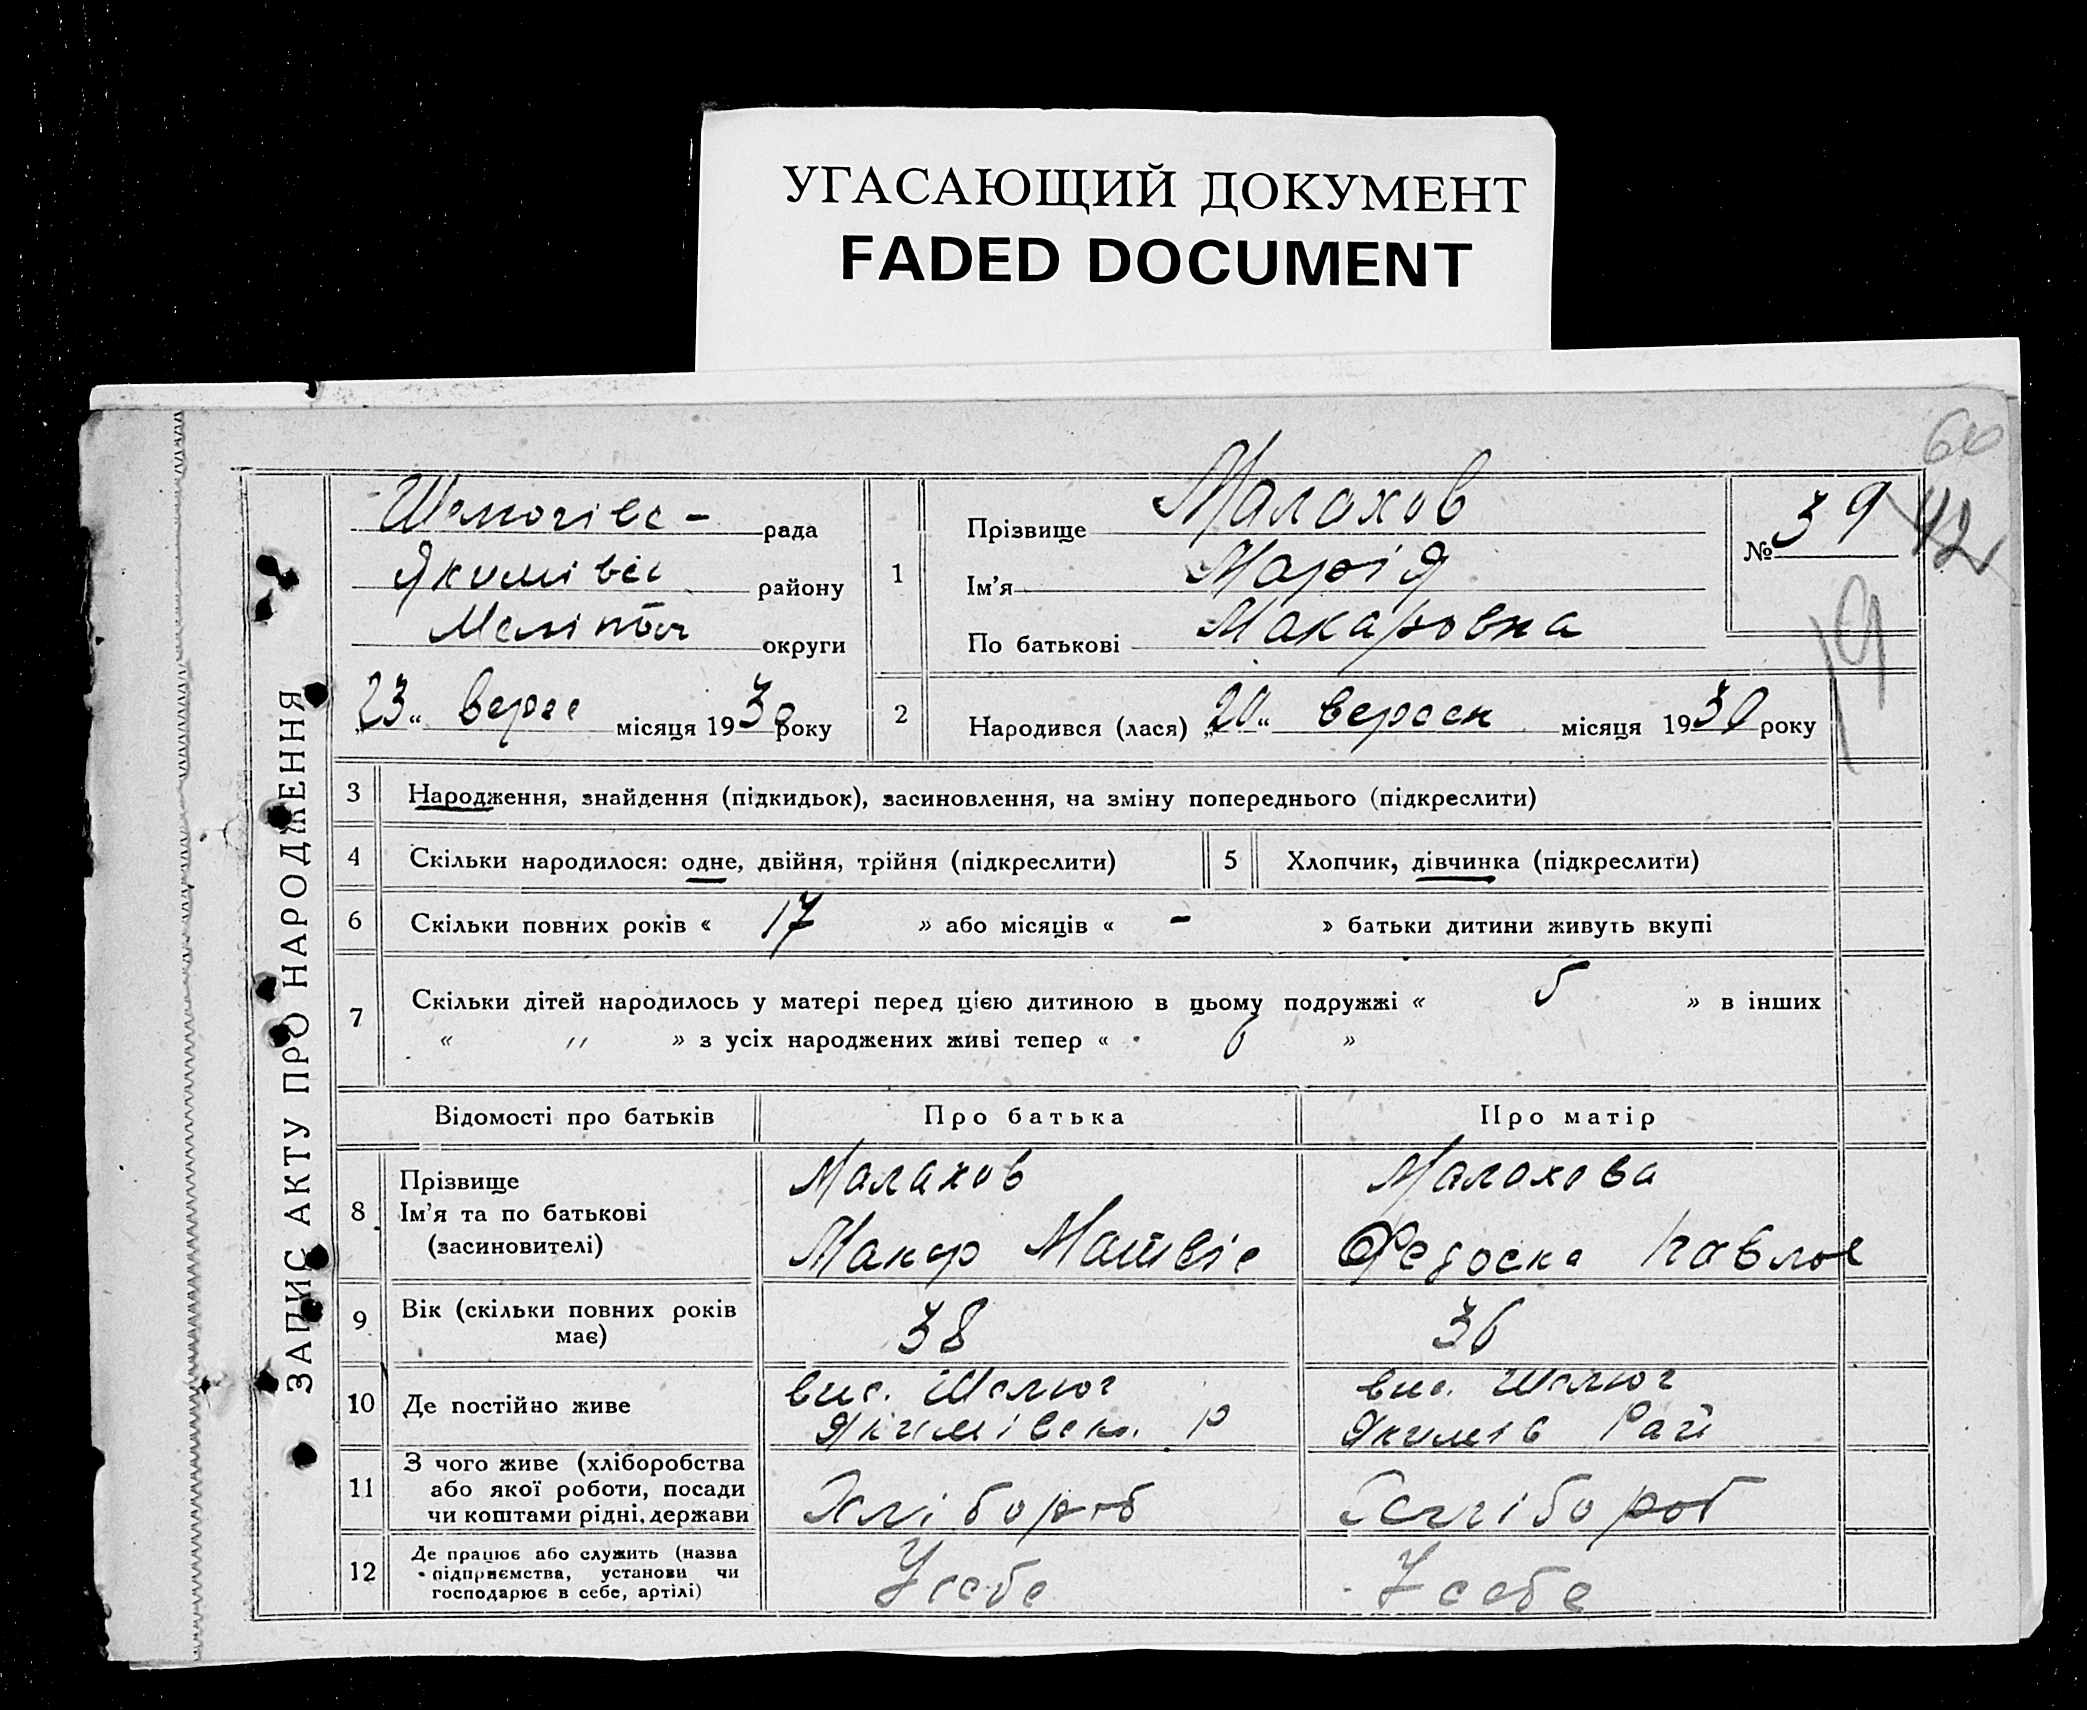 УГАСАЮЩИЙ ДОКУМЕНТ
FADED DOCUMENT
ЗАПИС АКТУ ПРО НАРОДЖЕННЯ
рада
Якимівсь району
Меліпол округи
„23“ верес місяця 1930 року
1
Прізвище Малахов
Ім'я Марія
По батькові Макаровна
№ 39
42
19
2
Народився (лася) „20“ вересн місяця 1930 року
3 Народження, знайдення (підкидьок), засиновлення, на зміну попереднього (підкреслити)
4 Скільки народилося: одне, двійня, трійня (підкреслити)
5 Хлопчик, дівчинка (підкреслити)
6 Скільки повних років « 17 » або місяців « - » батьки дитини живуть вкупі
7 Скільки дітей народилось у матері перед цією дитиною в цьому подружжі « 5 » в інших
« ,, » з усіх народжених живі тепер « 6 »
Відомості про батьків Про батька Про матір
8 Прізвище
Ім'я та по батькові
(засиновителі)
Малахов
Макар Матвіє
Малахова
Федоска Павлов
9 Вік (скільки повних років
має)
38
36
10 Де постійно живе
вис. Шелюг
Якимівськ. р
вис. Шелюг
Якимів Рай
11 З чого живе (хліборобства
або якої роботи, посади
чи коштами рідні, держави
Хлібороб
Хлібороб
12 Де працює або служить (назва
підприємства, установи чи
господарює в себе, артілі)
У себе
У себе